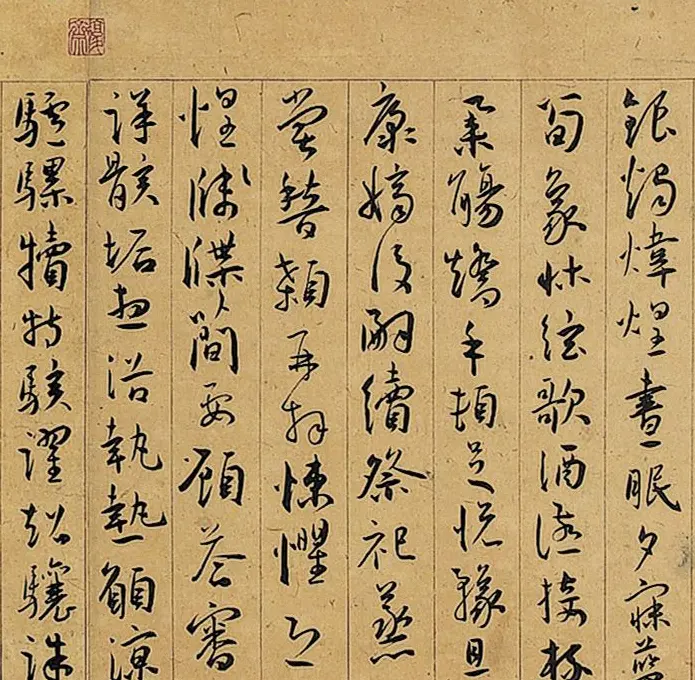 銀燭煒煌晝眠夕寐藍
筍象牀絃歌酒讌接杯
舉觴矯手頓足悅豫且
康嫡後嗣續祭祀蒸
嘗稽顙再拜悚懼恐
惶牋牒簡要顧答審
詳骸垢想浴執熱願涼
驢騾犢特駭躍超驤誅